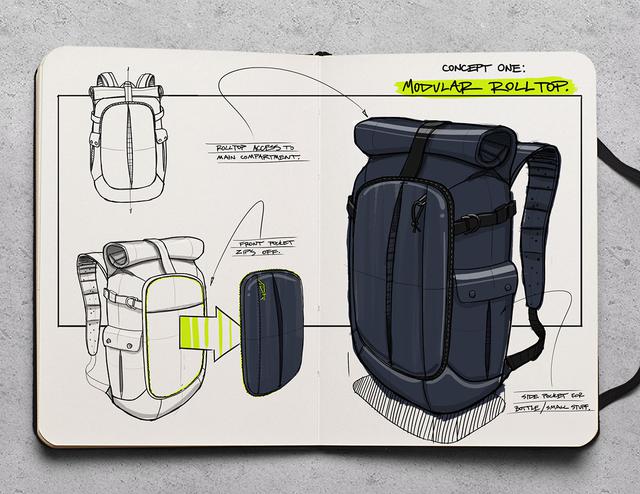 CONCEPT ONE:
MODULAR ROLLTOP.
ROLLTOP ACCESS TO
MAIN COMPARTMENT.
FRONT POCKET
ZIPS OFF.
SIDE POCKET FOR
BOTTLE/SMALL STUFF.